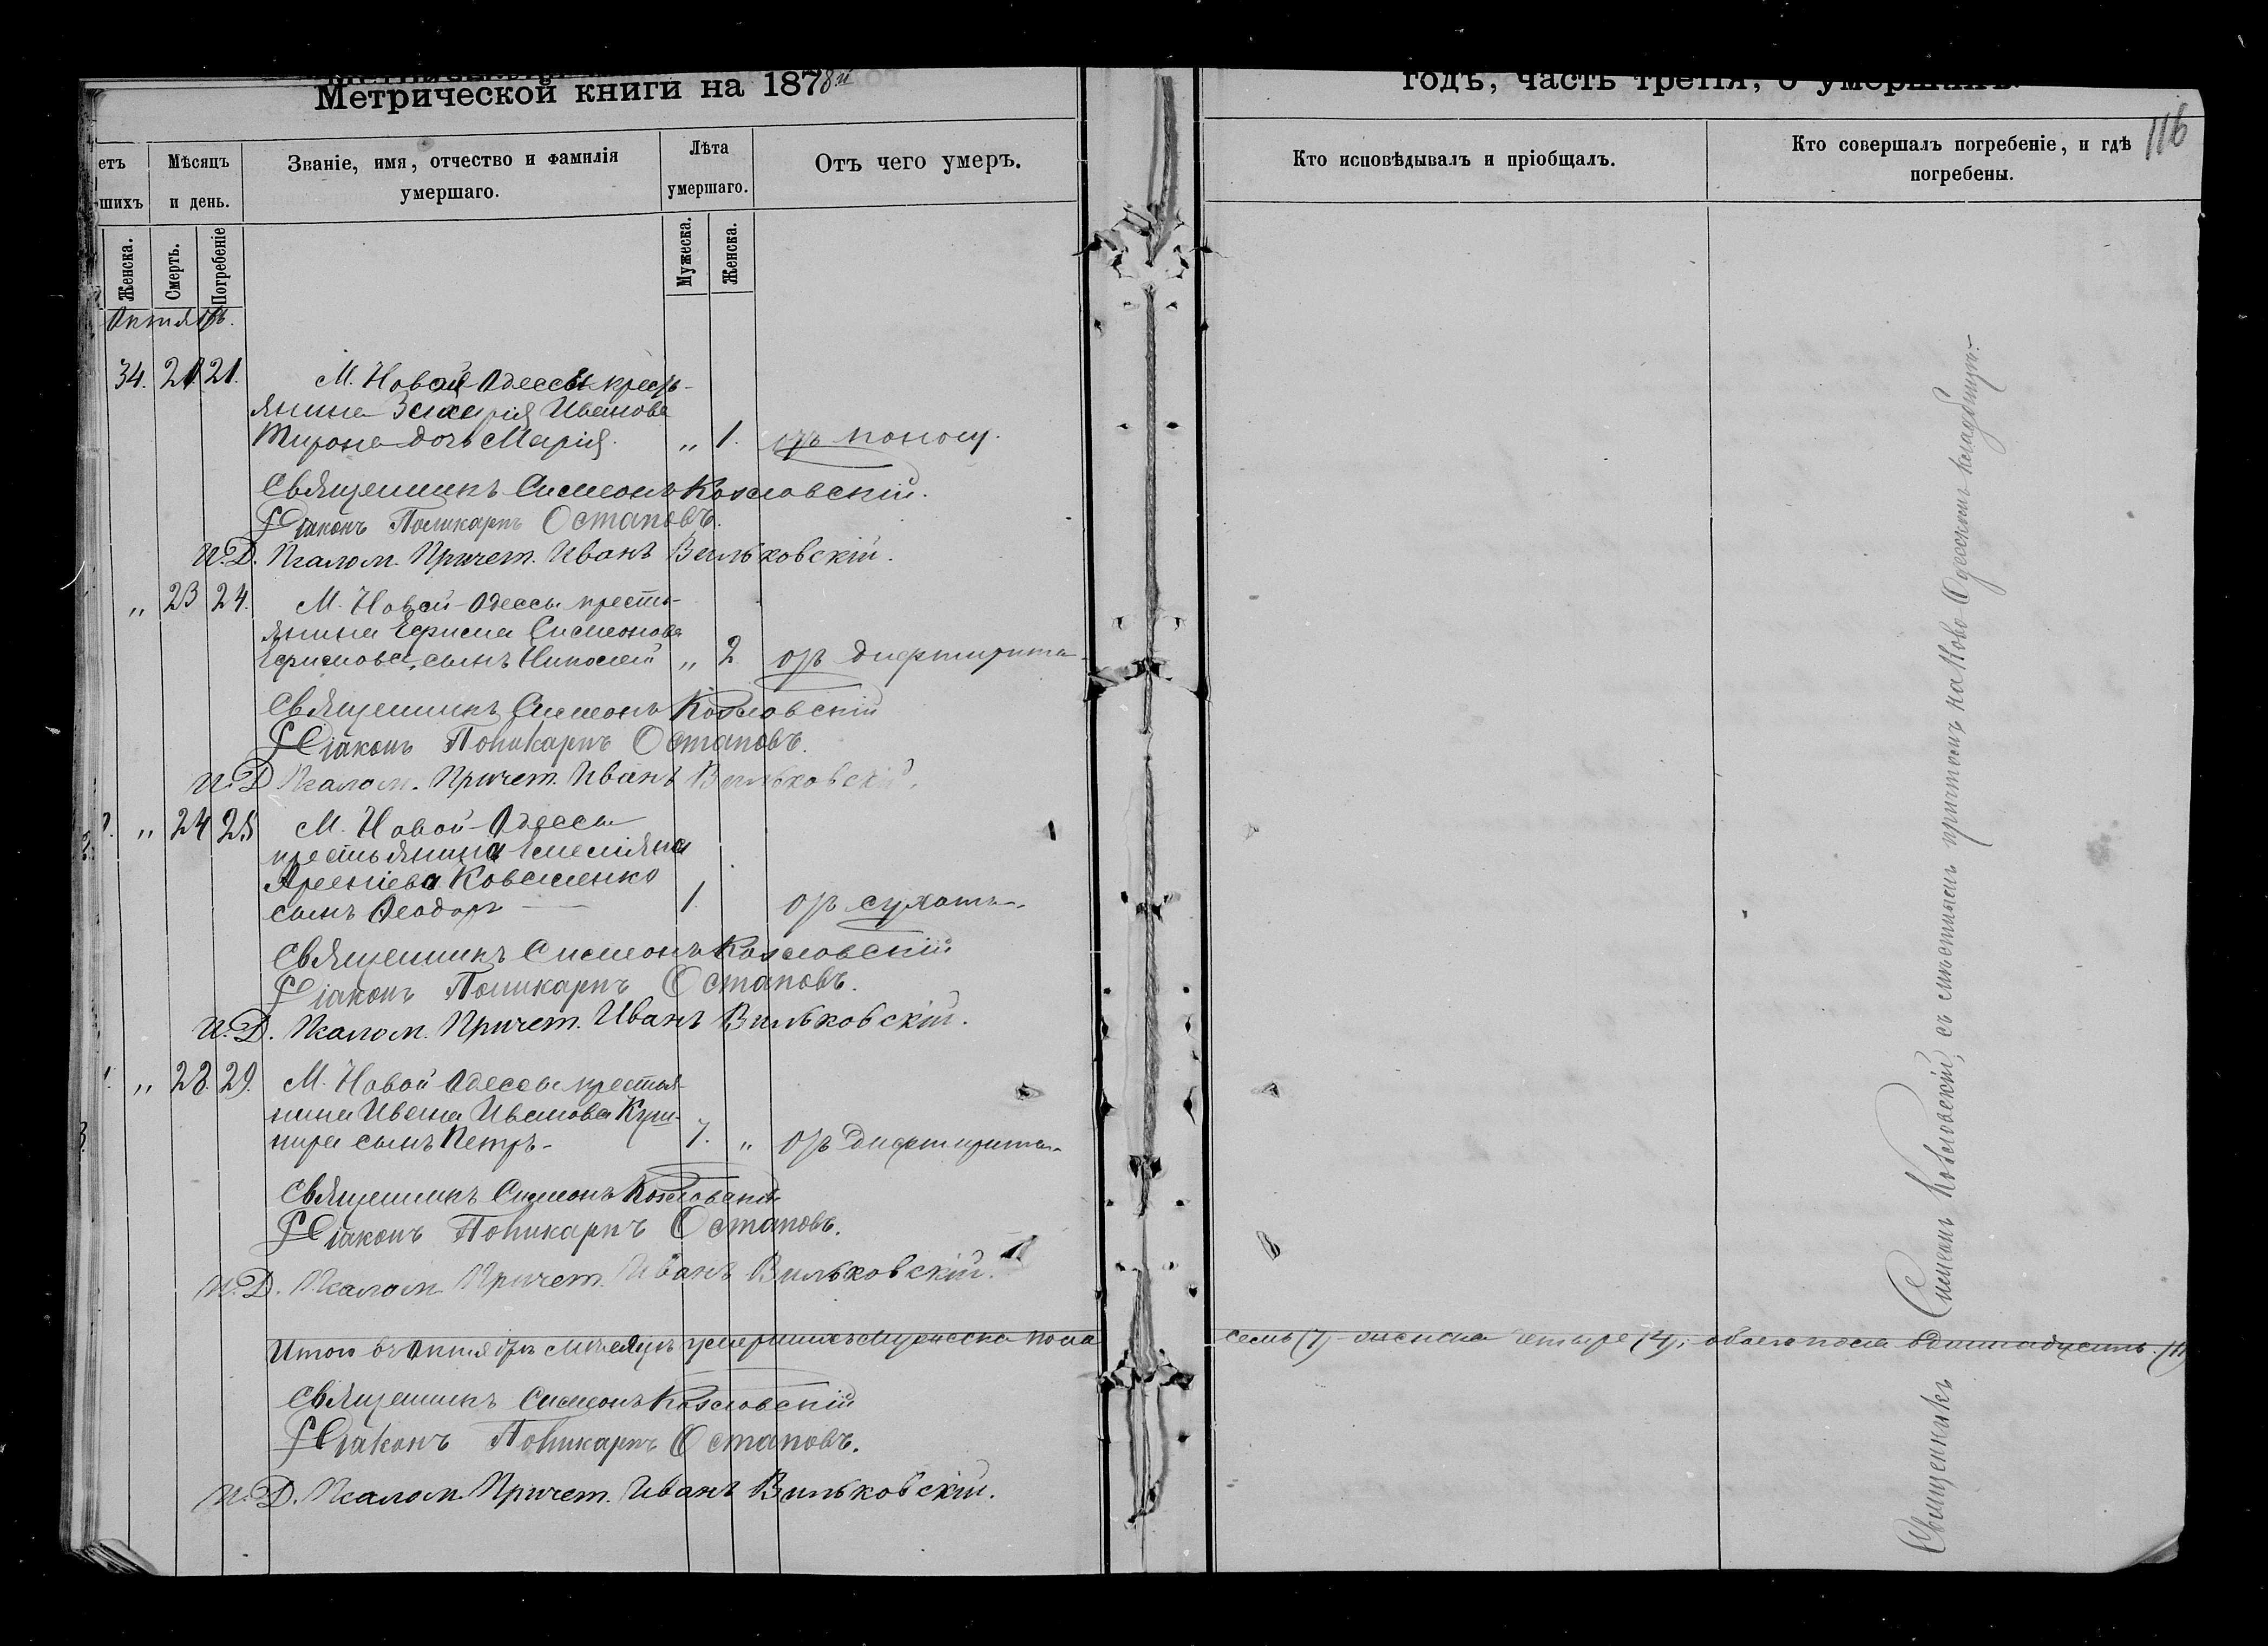 Метрической книги на 1878й
годъ, часть третія, о умершихъ.
116
етъ
шихъ
Мѣсяцъ
и день.
Званіе, имя, отчество и фамилія
умершаго.
Лѣта
умершаго.
Отъ чего умеръ.
Кто исповѣдывалъ и пріобщалъ.
Кто совершалъ погребеніе, и гдѣ
погребены.
Женска.
Смерть.
Погребеніе
Мужеска.
Женска.
Октябрь.
34. 21. 21. М. Новой-Одессы кресть-
янина Захарія Иванова
Мирона дочь Марія. „ 1. отъ поносу.
Священникъ Симеонъ Козловскій.
Діаконъ Поликарпъ Остаповъ.
И. Д. Псалом. Причет. Иванъ Вильковскій.
„ 23 24. М. Новой-Одессы кресть-
янина Ефима Симеонова
Ефимова, сынъ Николай „ 2. отъ дифтирита
Священникъ Симеонъ Козловскій
Діаконъ Поликарпъ Остаповъ.
И. Д. Псалом. Причет. Иванъ Вильковскій.
„ 24 25 М. Новой-Одессы
крестьянина Емеліяна
Арсеніева Коваленко
сынъ Ѳеодоръ 1. отъ сухоты.
Священникъ Симеонъ Козловскій
Діаконъ Поликарпъ Остаповъ.
И. Д. Псалом. Причет. Иванъ Вильковскій.
„ 28. 29. М. Новой Одессы крестья-
нина Ивана Иванова Куш-
нира сынъ Петръ- 7. „ отъ дифтирита
Священникъ Симеонъ Козловскій
Діаконъ Поликарпъ Остаповъ.
И. Д. Псалом. Причет. Иванъ Вильковскій.
Итого въ Октябрѣ мѣсяцѣ умершихъ мужеска пола семь (7) женска четыре (4); обоего пола одинадцать (11)
Священникъ Симеонъ Козловскій
Діаконъ Поликарпъ Остаповъ.
И. Д. Псалом. Причет. Иванъ Вильковскій.
Священникъ Симеонъ Козловскій, съ мѣстнымъ причтомъ на Ново-Одесскомъ кладбищѣ.-